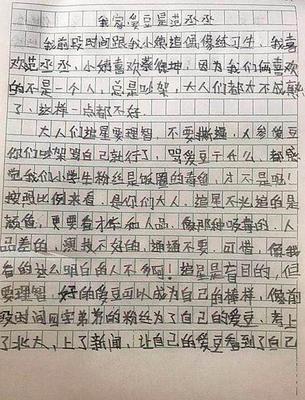 我家爱豆是范丞丞
我前段时间跟我小姨追偶像练习生，我喜
欢范丞丞，小姨喜欢蔡徐坤，因为我们俩喜欢
的不是一个人，总是吵架，大人们都太不成熟
了，这样一点都不好。
大人们追星要理智，不要撕逼，人参爱豆
你们吵架骂自己就行了，骂爱豆干什么，都感
觉我们小学生粉丝是饭圈的毒鱼，才不是呢！
按照比例来看，是你们大人，追星不光追的是
颜色，更要看才华和人品，像那种吸毒的，人
品差的，演技不好的，通通不要，可惜，像我
看的这么明白的人不多啊！追星是盲目的，但
要理智，好的爱豆可以成为自己的榜样，像前
段时间四字弟弟的粉丝为了自己的爱豆，考上
了北大，上了新闻，让自己的爱豆看到了自己